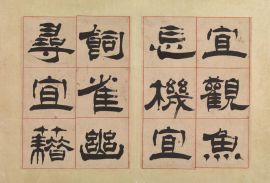 宜觀魚
忘機宜
飼雀幽
尋宜藉